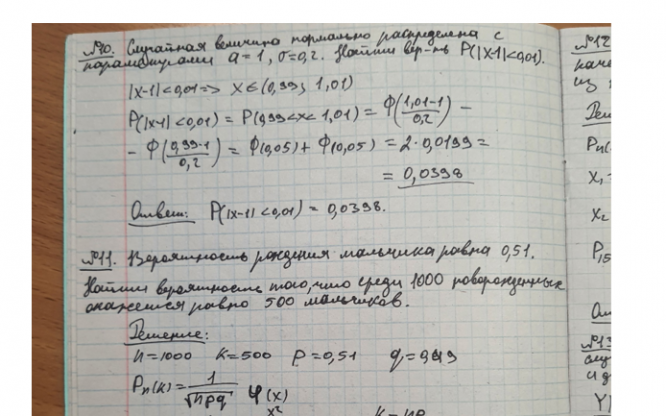 №10. Случайная величина нормально распределена с
параметрами a=1, σ=0,2. Найти вер-ть P(|X-1|<0,01).
|X-1|<0,01 => X∈(0,99; 1,01)
P(|X-1|<0,01) = P(0,99<X<1,01) = Ф((1,01-1)/0,2) -
- Ф((0,99-1)/0,2) = Ф(0,05) + Ф(0,05) = 2·0,0199 =
= 0,0398
Ответ: P(|X-1|<0,01) = 0,0398.
№11. Вероятность рождения мальчика равна 0,51.
Найти вероятность того, что среди 1000 новорожденных
окажется равно 500 мальчиков.
Решение:
n=1000 k=500 p=0,51 q=0,49
Pn(k) = 1/√npq φ(x)
№12
каче
из
Реш
Pn(
X1
X2
P15
От
№13